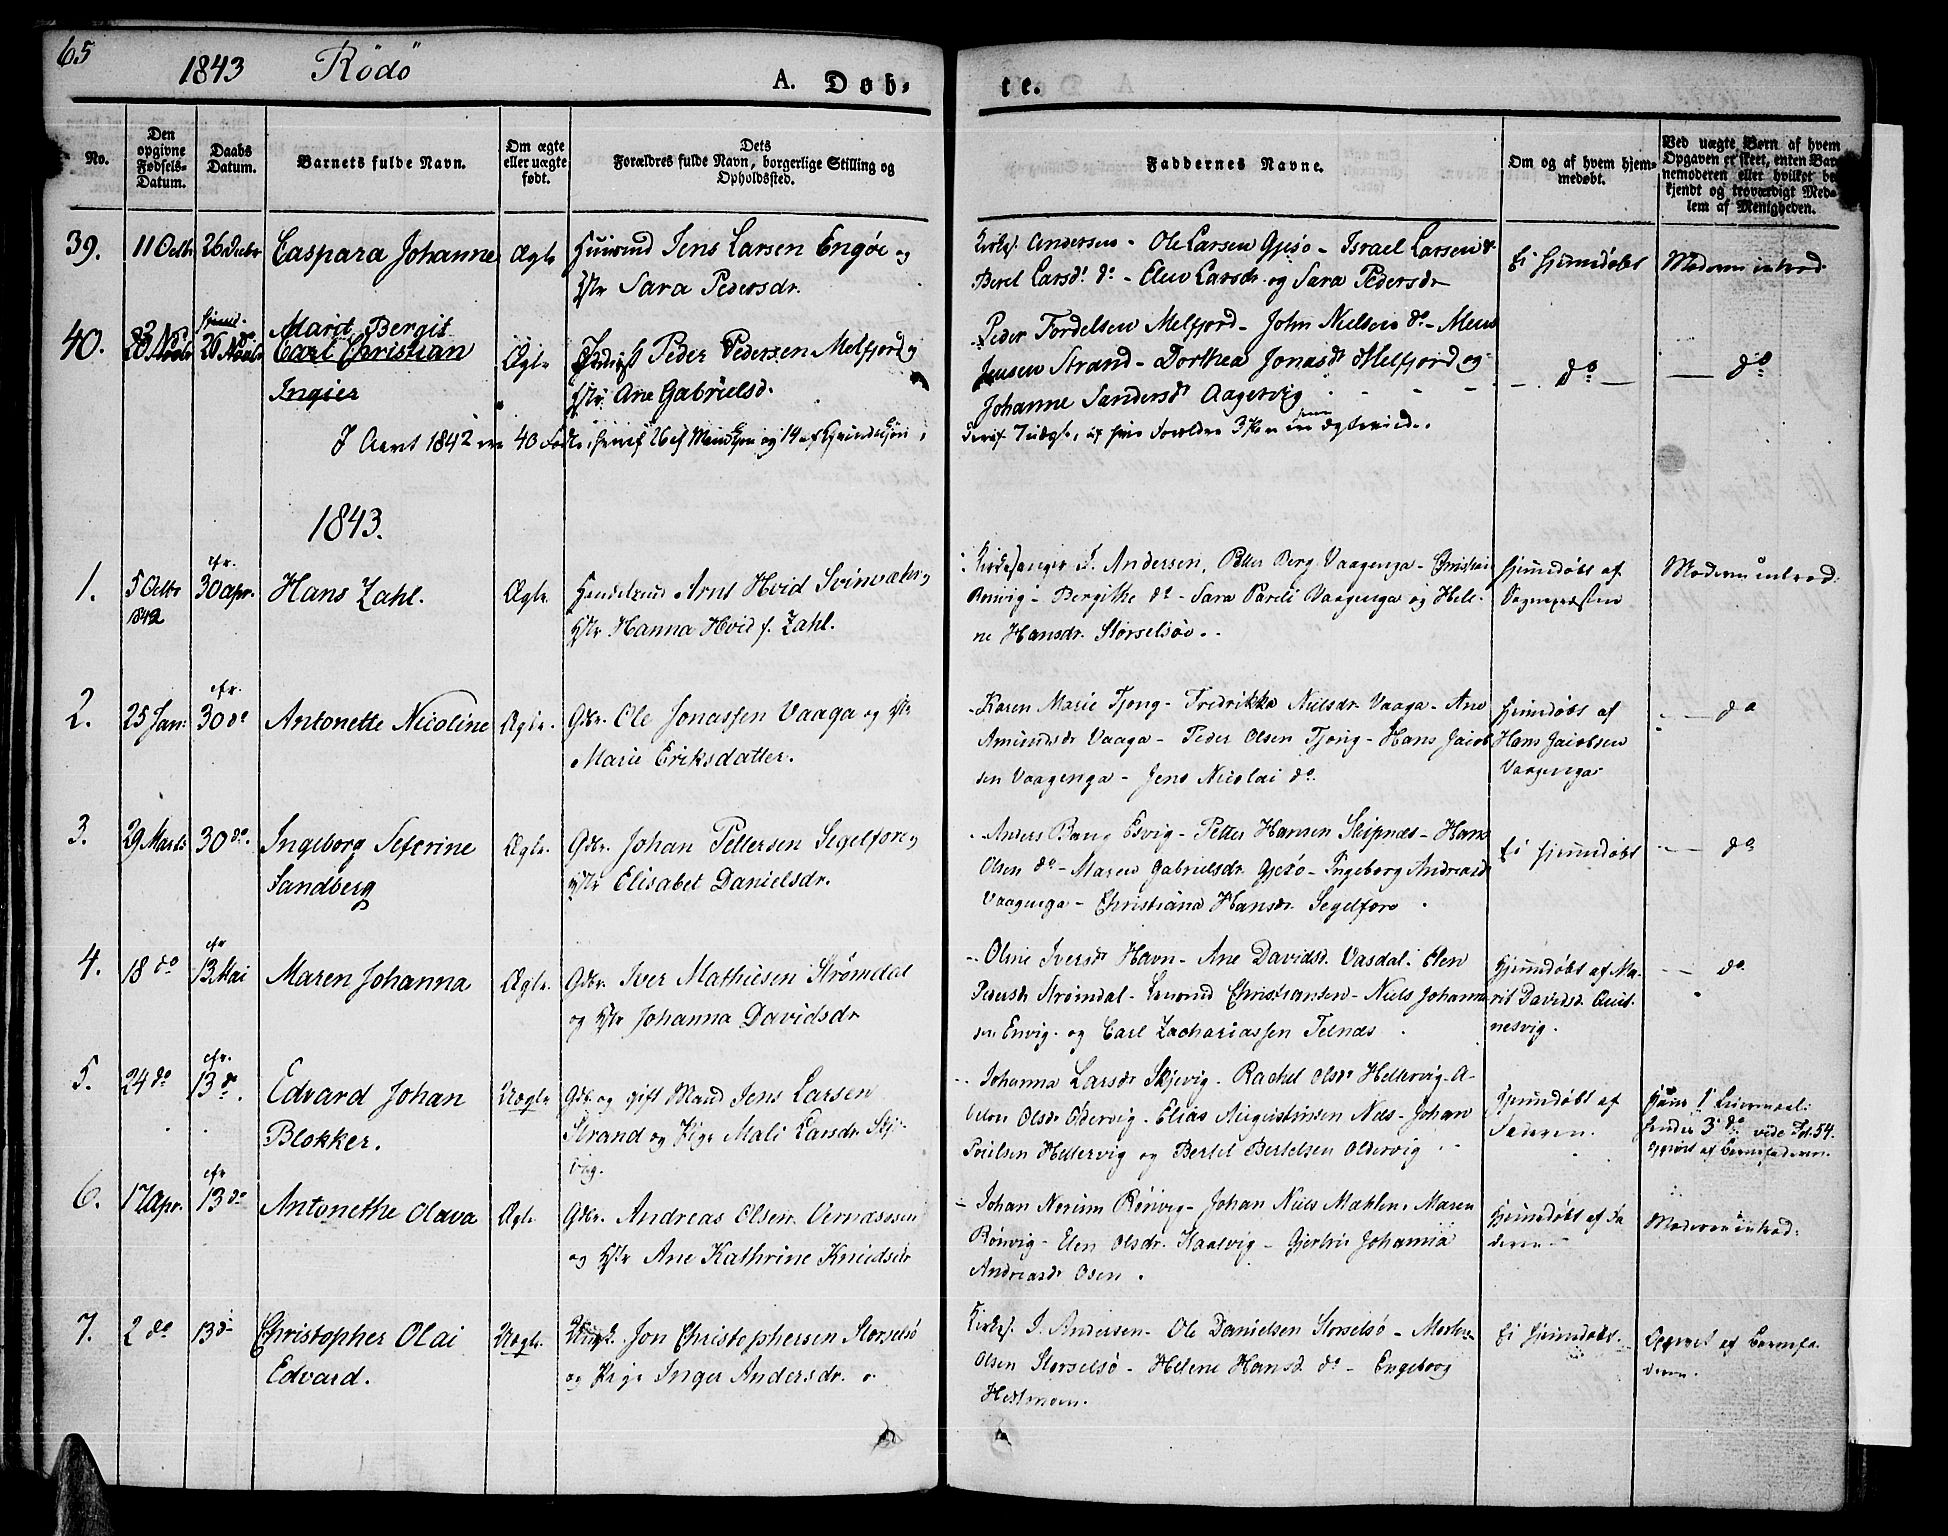 65
1843 Rödö
A. Døb-
te.
No.
Den opgivne Fødsels-Datum.
Daabs Datum.
Barnets fulde Navn.
Om ægte eller uægte født.
Dets
Forældres fulde Navn, borgerlige Stilling og
Opholdssted.
Faddernes Navne.
Om og af hvem hjem-
medøbt.
Ved uægte Børn af hvem
Opgaven er skeet, enten Bar-
nemoderen eller hvilket be-
kjendt og troværdigt Med-
lem af Menigheden.
39. 11 Octbr 26 Decbr Caspara Johanne Ægte Jens Larsen Engøe og
Sara Pedersdr.
Andersen - Ole Larsen Gjesö - Israel Larsen
Beret Larsdr do - Elen Larsdr og Sara Pedersdr
Ei hjemdøbt Moderen introd.
40. Marit Bergit
Carl Christian
Ingier
Ægte Peder Pedersen Melfjord og
Ane Gabrielsd.
Peder Tordelsen Melfjord - John Nielsen do - Mens
Jensen Strand - Dorthea Jonasdr Melfjord og
Johanne Sandersdr Aagervig
do do
I Aaret 1842 40 Fødte, heraf 26 af Mandkjøn og 14 af Qvindekjøn,
1843.
1. 5 Octbr
1842
cfr.
30 apr. Hans Zahl. Ægte. Arnt Hvid Svinvær og
Hanna Hvid f. Zahl.
Kirkesanger J. Andersen, Petter Berg Vaagenga - Christian
Rønvig - Bergithe do - Sara Pareli Vaagenga og Hele-
ne Hansdr. Storselsöe.
hjemdøbt af
Sognepræsten
Moderen introd.
2. 25 Jan: cfr.
30 do Antonette Nicoline Ægte. Gdbr. Ole Jonassen Vaaga og Hstr
Marie Eriksdatter.
Karen Marie Tjong - Fredrikka Nielsdr Vaaga - Ane
Amundsdr Vaaga - Peder Olsen Tjong - Hans Jacob-
sen Vaagenga - Jens Nicolai do.
hjemdøbt af
Hans Jacobsen
Vaagenga
do
3. 29 Marts 30 do. Ingeborg Seferine
Sandberg
Ægte. Gdbr. Johan Pettersen Segelfore og
Hstr Elisabet Danielsdr.
Anders Bang Esvig - Petter Hansen Skipnæs - Hans
Olsen do - Maren Gabrielsdr. Gjesö - Ingeborg Andreasdr
Vaagenga - Christiana Hansdr. Segelfore
Ei hjemdøbt do
4. 18 do cfr
13 Mai Maren Johanna Ægte. Gdbr. Iver Mathiesen Strømdal
og Hstr Johanna Davidsdr
Oline Iversdr Havn - Ane Davidsd. Vasdal. Elen
Pedersdr Strømdal - Christiansen - Niels Johann-
sen Envig. og Carl Zachariassen Telnæs
hjemdøbt af Ma-
rit Davidsd.
nesvig.
do.
5. 24 do cfr.
13 do. Edvard Johan
Blokker.
Uægte Gdbr. og gift Mand Jens Larsen
Strand og Pige Mali Larsdr. Skj-
vig.
Johanna Larsdr Skjevig. Rachel Olsdr Heltervig. A-
Olsdr Oldervig - Elias Augustinsen Næs - Johan
Poulsen Heltervig og Bertel Bertelsen Oldervig
hjemdøbt af
Faderen.
Hans 1' Leiermaal:
hendes 3' do vide Fol. 54.
opgivet af Barnefaderen.
6. 17 Apr. cfr
13 do Antonethe Olava Ægte Gdbr. Andreas Olsen Vernæssen
og Hstr Ane Kathrine Knudsdr
Johan Norum Rönvig - Johan Niels Mæhlen. Maren
Rönvig - Elen Olsdr. Kaalvig - Gjertru Johanna
Andreasdr Osen.
hjemdøbt af Fa-
deren.
Moderen introd:
7. 2 do 13 do Christopher Olai
Edvard.
Uægte. Ungk. Jon Christophersen Storselsö
og Pige Inger Andersdr.
Kirkes. J. Andersen - Ole Danielsen Storselsö - Morten
Olsen Storselsö - Helene Hansd. do - Engeborg
Hestmoen.
Ei hjemdøbt. Opgivet af Barnefa-
deren.